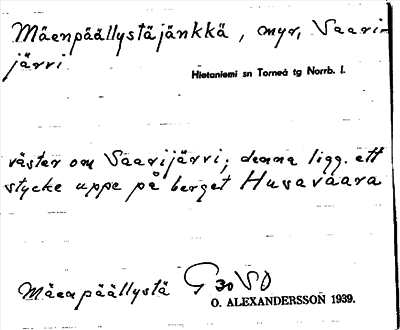 Mäenpäällystäjänkkä, myr, Vaari-
järvi
Hietaniemi sn Torneå tg Norrb. l.
väster om Vaarijärvi; denna ligg. ett
stycke uppe på berget Husavaara
Mäenpäällystä G 30 V O
O. ALEXANDERSSON 1939.